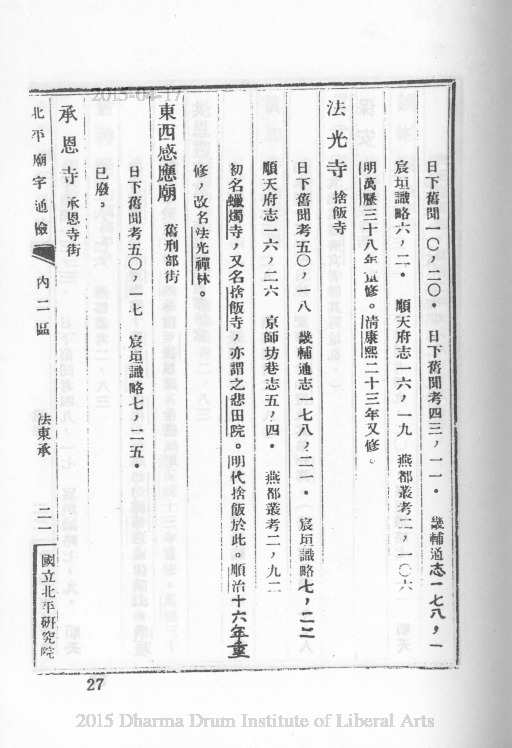 2015-04-17
日下舊聞一〇,二〇. 日下舊聞考四三,一一. 畿輔通志一七八,一
宸垣識略六,二. 順天府志一六,一九 燕都叢考二,一〇六
明萬曆三十八年重修。清康熙二十三年又修。
法光寺 捨飯寺
日下舊聞考五〇,一八 畿輔通志一七八,二一. 宸垣識略七,二二
順天府志一六,二六 京師坊巷志五,四. 燕都叢考二,九二
初名蠟燭寺,又名捨飯寺,亦謂之悲田院。明代捨飯於此。順治十六年重
修,改名法光禪林。
東西感應廟 舊刑部街
日下舊聞考五〇,一七 宸垣識略七,二五.
已廢。
承恩寺 承恩寺街
北平廟宇通檢 內二區 法東承 二一 國立北平研究院
27
2015 Dharma Drum Institute of Liberal Arts